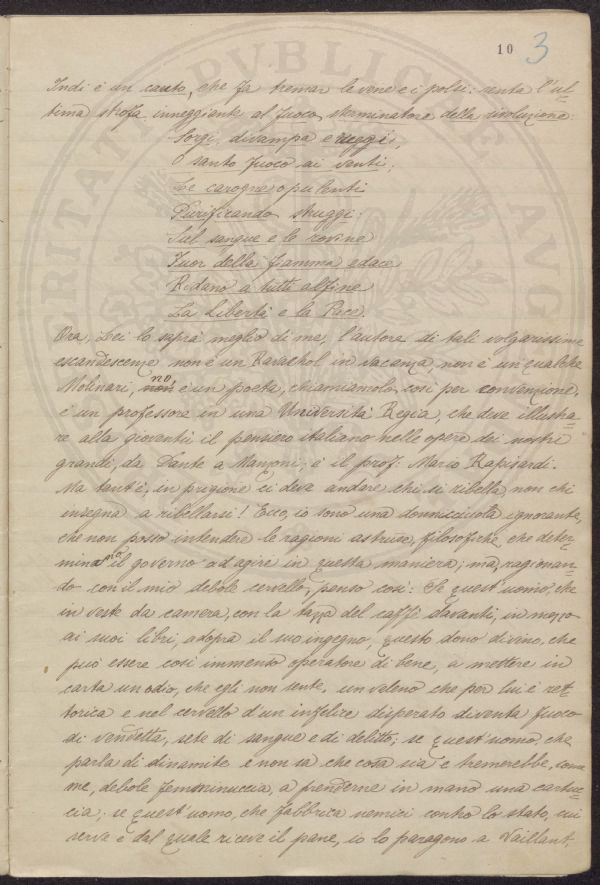 10 3
Indi è un canto, che fa tremar le vene e i polsi: senta l'ul-
tima strofa inneggiante al fuoco sterminatore della rivoluzione:
Sorgi, divampa e ruggi,
O santo fuoco ai venti;
Le carogne opulenti
Purificando struggi:
Sul sangue e le rovine
Fuor della fiamma edace
Ridano a tutti alfine
La Libertà e la Pace.
Ora, Lei lo saprà meglio di me, l'autore di tali volgarissime
escandescenze non è un Ravachol in vacanza, non è un qualche
Molinari, no è un poeta, chiamiamolo così per convenzione,
è un professore in una Università Regia, che deve illustra-
re alla gioventù il pensiero italiano nelle opere dei nostri
grandi, da Dante a Manzoni; è il prof: Mario Rapisardi.
Ma tant'è, in prigione ci deve andare chi si ribella, non chi
insegna a ribellarsi! Ecco, io sono una donnicciuola ignorante,
che non posso intendere le ragioni astruse, filosofiche, che deter-
minano il governo ad agire in questa maniera; ma, ragionan-
do con il mio debole cervello, penso così: Se quest'uomo, che
in veste da camera, con la tazza del caffè davanti, in mezzo
ai suoi libri, adopra il suo ingegno, questo dono divino, che
può essere così immenso operatore di bene, a mettere in
carta un odio, che egli non sente, un veleno che per lui è ret-
torica e nel cervello d'un infelice disperato diventa fuoco
di vendetta, sete di sangue e di delitto; se quest'uomo, che
parla di dinamite e non sa che cosa sia e tremerebbe, come
me, debole femminuccia, a prenderne in mano una cartuc-
cia; se quest'uomo, che fabbrica nemici contro lo stato, cui
serve e dal quale riceve il pane, io lo paragono a Vaillant,